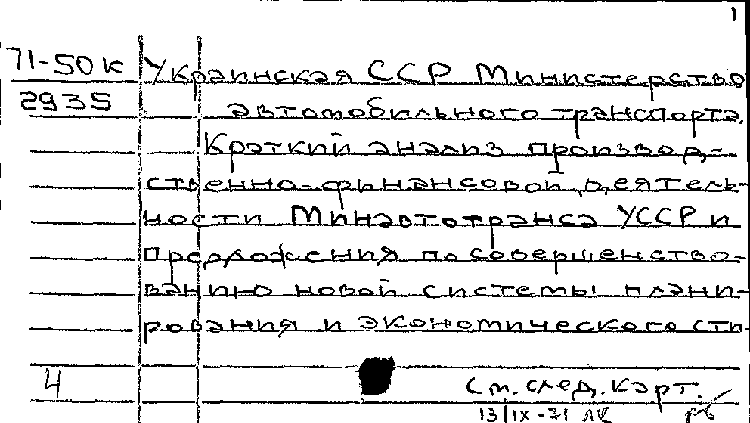 1
71-50к
2935
Украинская ССР Министерство
автомобильного транспорта.
Краткий анализ производ-
ственно-финансовой деятель-
ности Минавтотранса УССР и
предложения по совершенство-
ванию новой системы плани-
рования и экономического сти-
4
См. след. карт.
13/IX-71